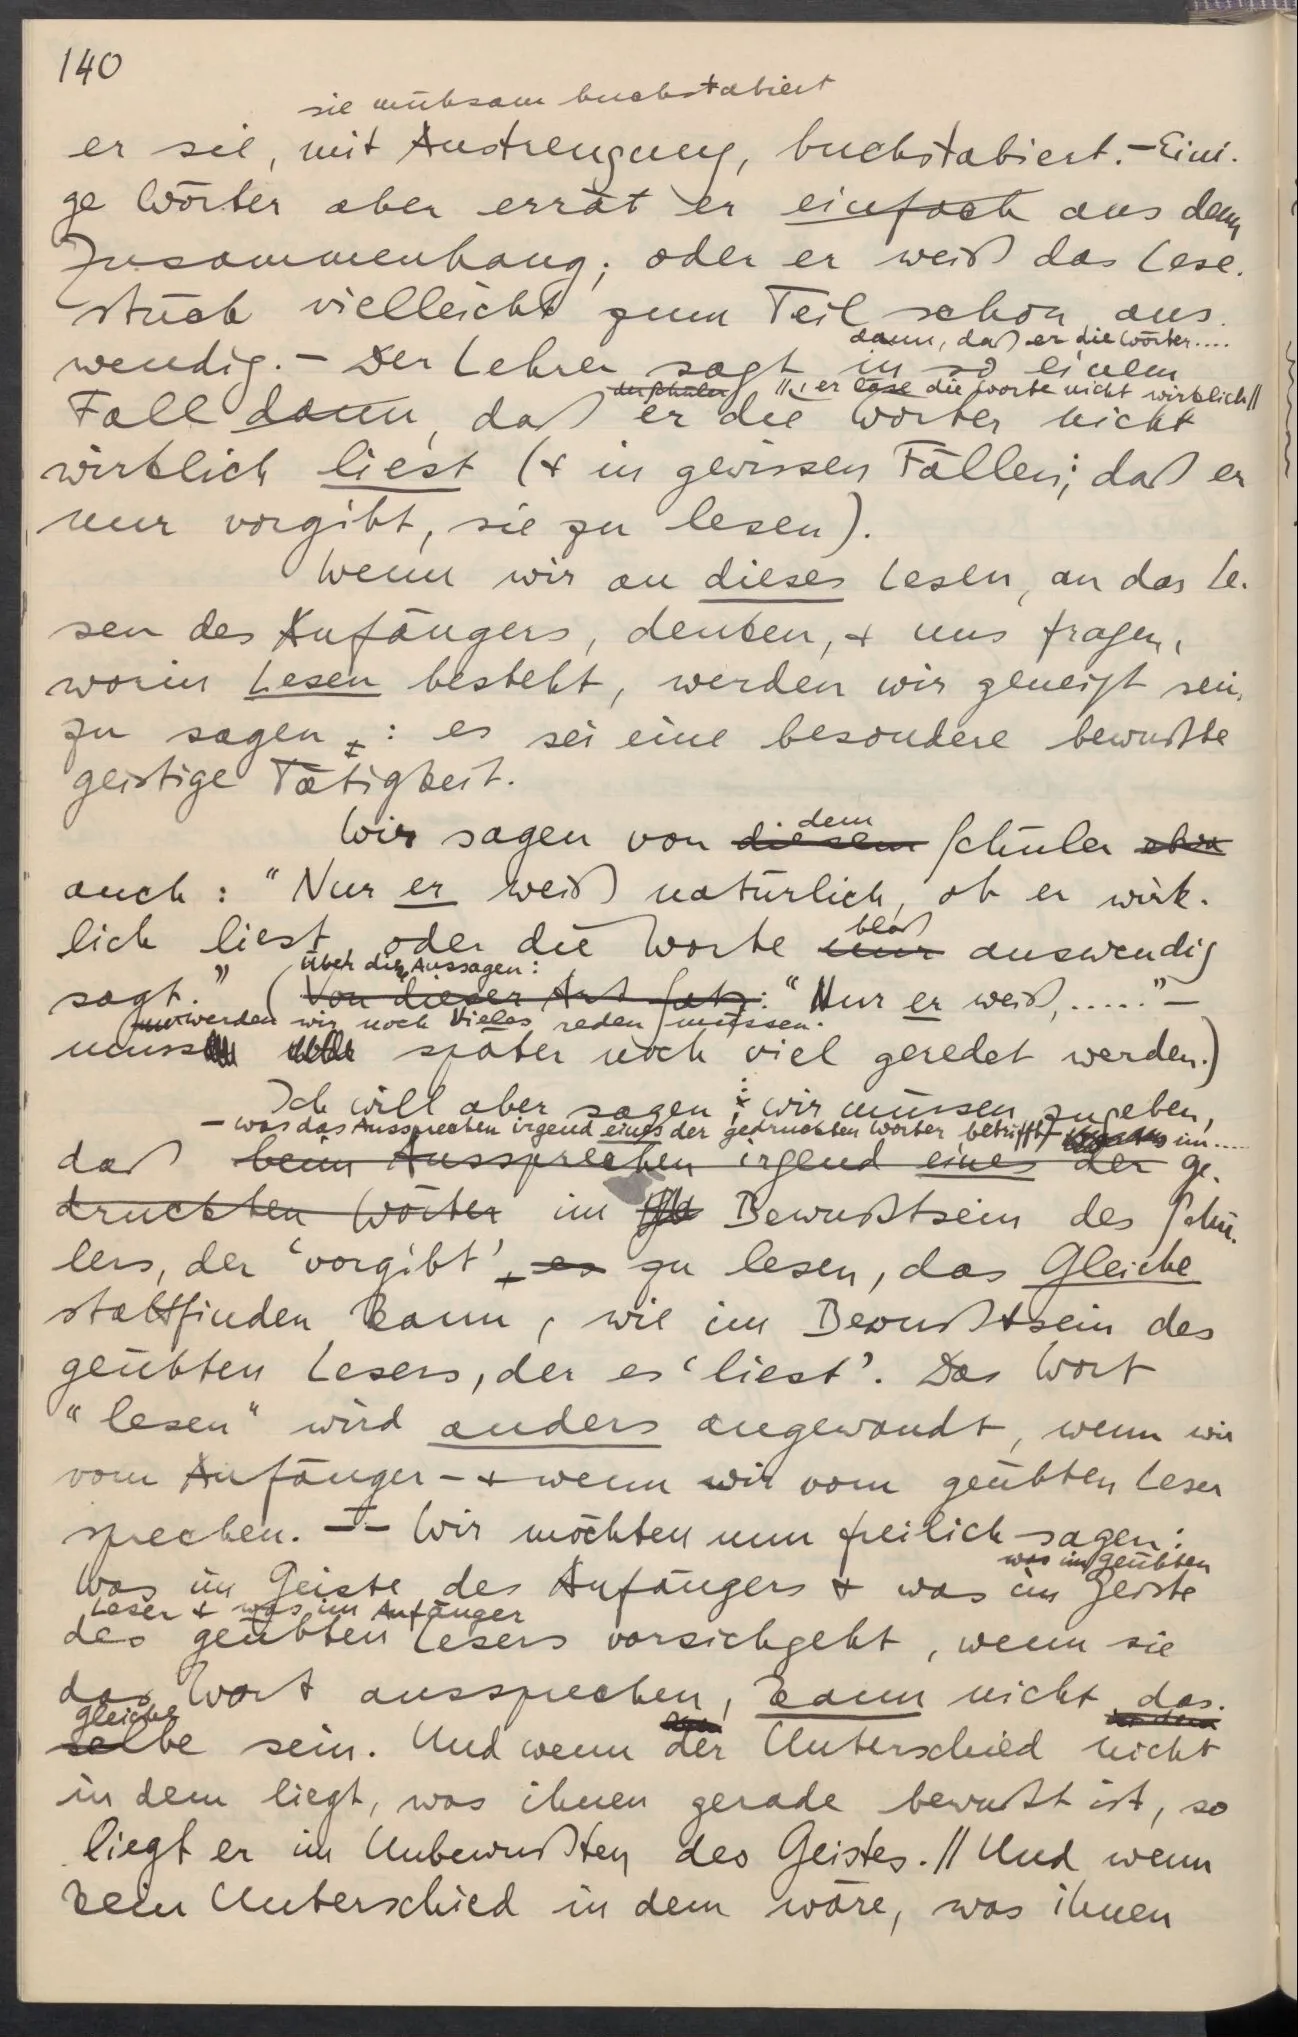 140
sie mühsam buchstabiert
er sie, mit Anstrengung, buchstabiert. – Eini-
ge Wörter aber errät er einfach aus dem
Zusammenhang; oder er weiß das Lese-
stück vielleicht zum Teil schon aus-
dann, daß er die Wörter....
wendig. – Der Lehrer sagt in so einem
der Schüler //, er lese die Worte nicht wirklich//
Fall dann, daß er die Wörter nicht
wirklich liest (& in gewissen Fällen; daß er
nur vorgibt, sie zu lesen).
Wenn wir an dieses Lesen, an das Le-
sen des Anfängers, denken, & uns fragen,
worin Lesen besteht, werden wir geneigt sein,
zu sagen: es sei eine besondere bewußte
geistige Tätigkeit.
dem
Wir sagen von diesem Schüler etwa
auch: "Nur er weiß natürlich, ob er wirk-
bloß
lich liest, oder die Worte nur auswendig
Über die Aussagen:
sagt." (Von dieser Art Satz: "Nur er weiß, ....." –
werden wir noch Vieles reden müssen.
muss später noch viel geredet werden.)
Ich will aber sagen: wir müssen zugeben,
– was das Aussprechen irgend eines der gedruckten Wörter betrifft – im ....
daß beim Aussprechen irgend eines der ge-
druckten Wörter im Bewußtsein des Schü-
lers, der 'vorgibt', es zu lesen, das Gleiche
stattfinden kann, wie im Bewußtsein des
geübten Lesers, der es 'liest'. Das Wort
"lesen" wird anders angewandt, wenn wir
vom Anfänger – & wenn wir vom geübten Leser
sprechen. –– Wir möchten nun freilich sagen:
was im geübten
Was im Geiste des Anfängers & was im Geiste
Leser & was im Anfänger
des geübten Lesers vorsichgeht, wenn sie
das Wort aussprechen, kann nicht das-
gleiche
selbe sein. Und wenn der Unterschied nicht
in dem liegt, was ihnen gerade bewußt ist, so
liegt er im Unbewußten des Geistes. // Und wenn
kein Unterschied in dem wäre, was ihnen